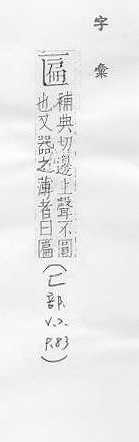 字彙
匾
補典切邊上聲不圓
也又器之薄者曰匾
(匚部. V.2. P.83)